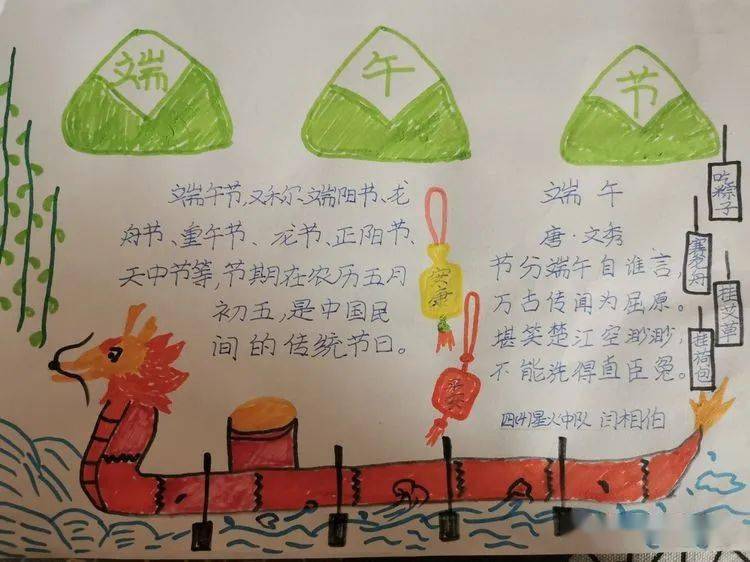 端 午 节
端午节,又称、端阳节、龙
舟节、重午节、龙节、正阳节、
天中节等,节期在农历五月
初五,是中国民
间的传统节日。
安康
端 午
唐·文秀
节分端午自谁言,
万古传闻为屈原。
堪笑楚江空渺渺,
不能洗得直臣冤。
四(4)星火中队 闫相伯
吃粽子
赛龙舟
挂艾草
挂荷包